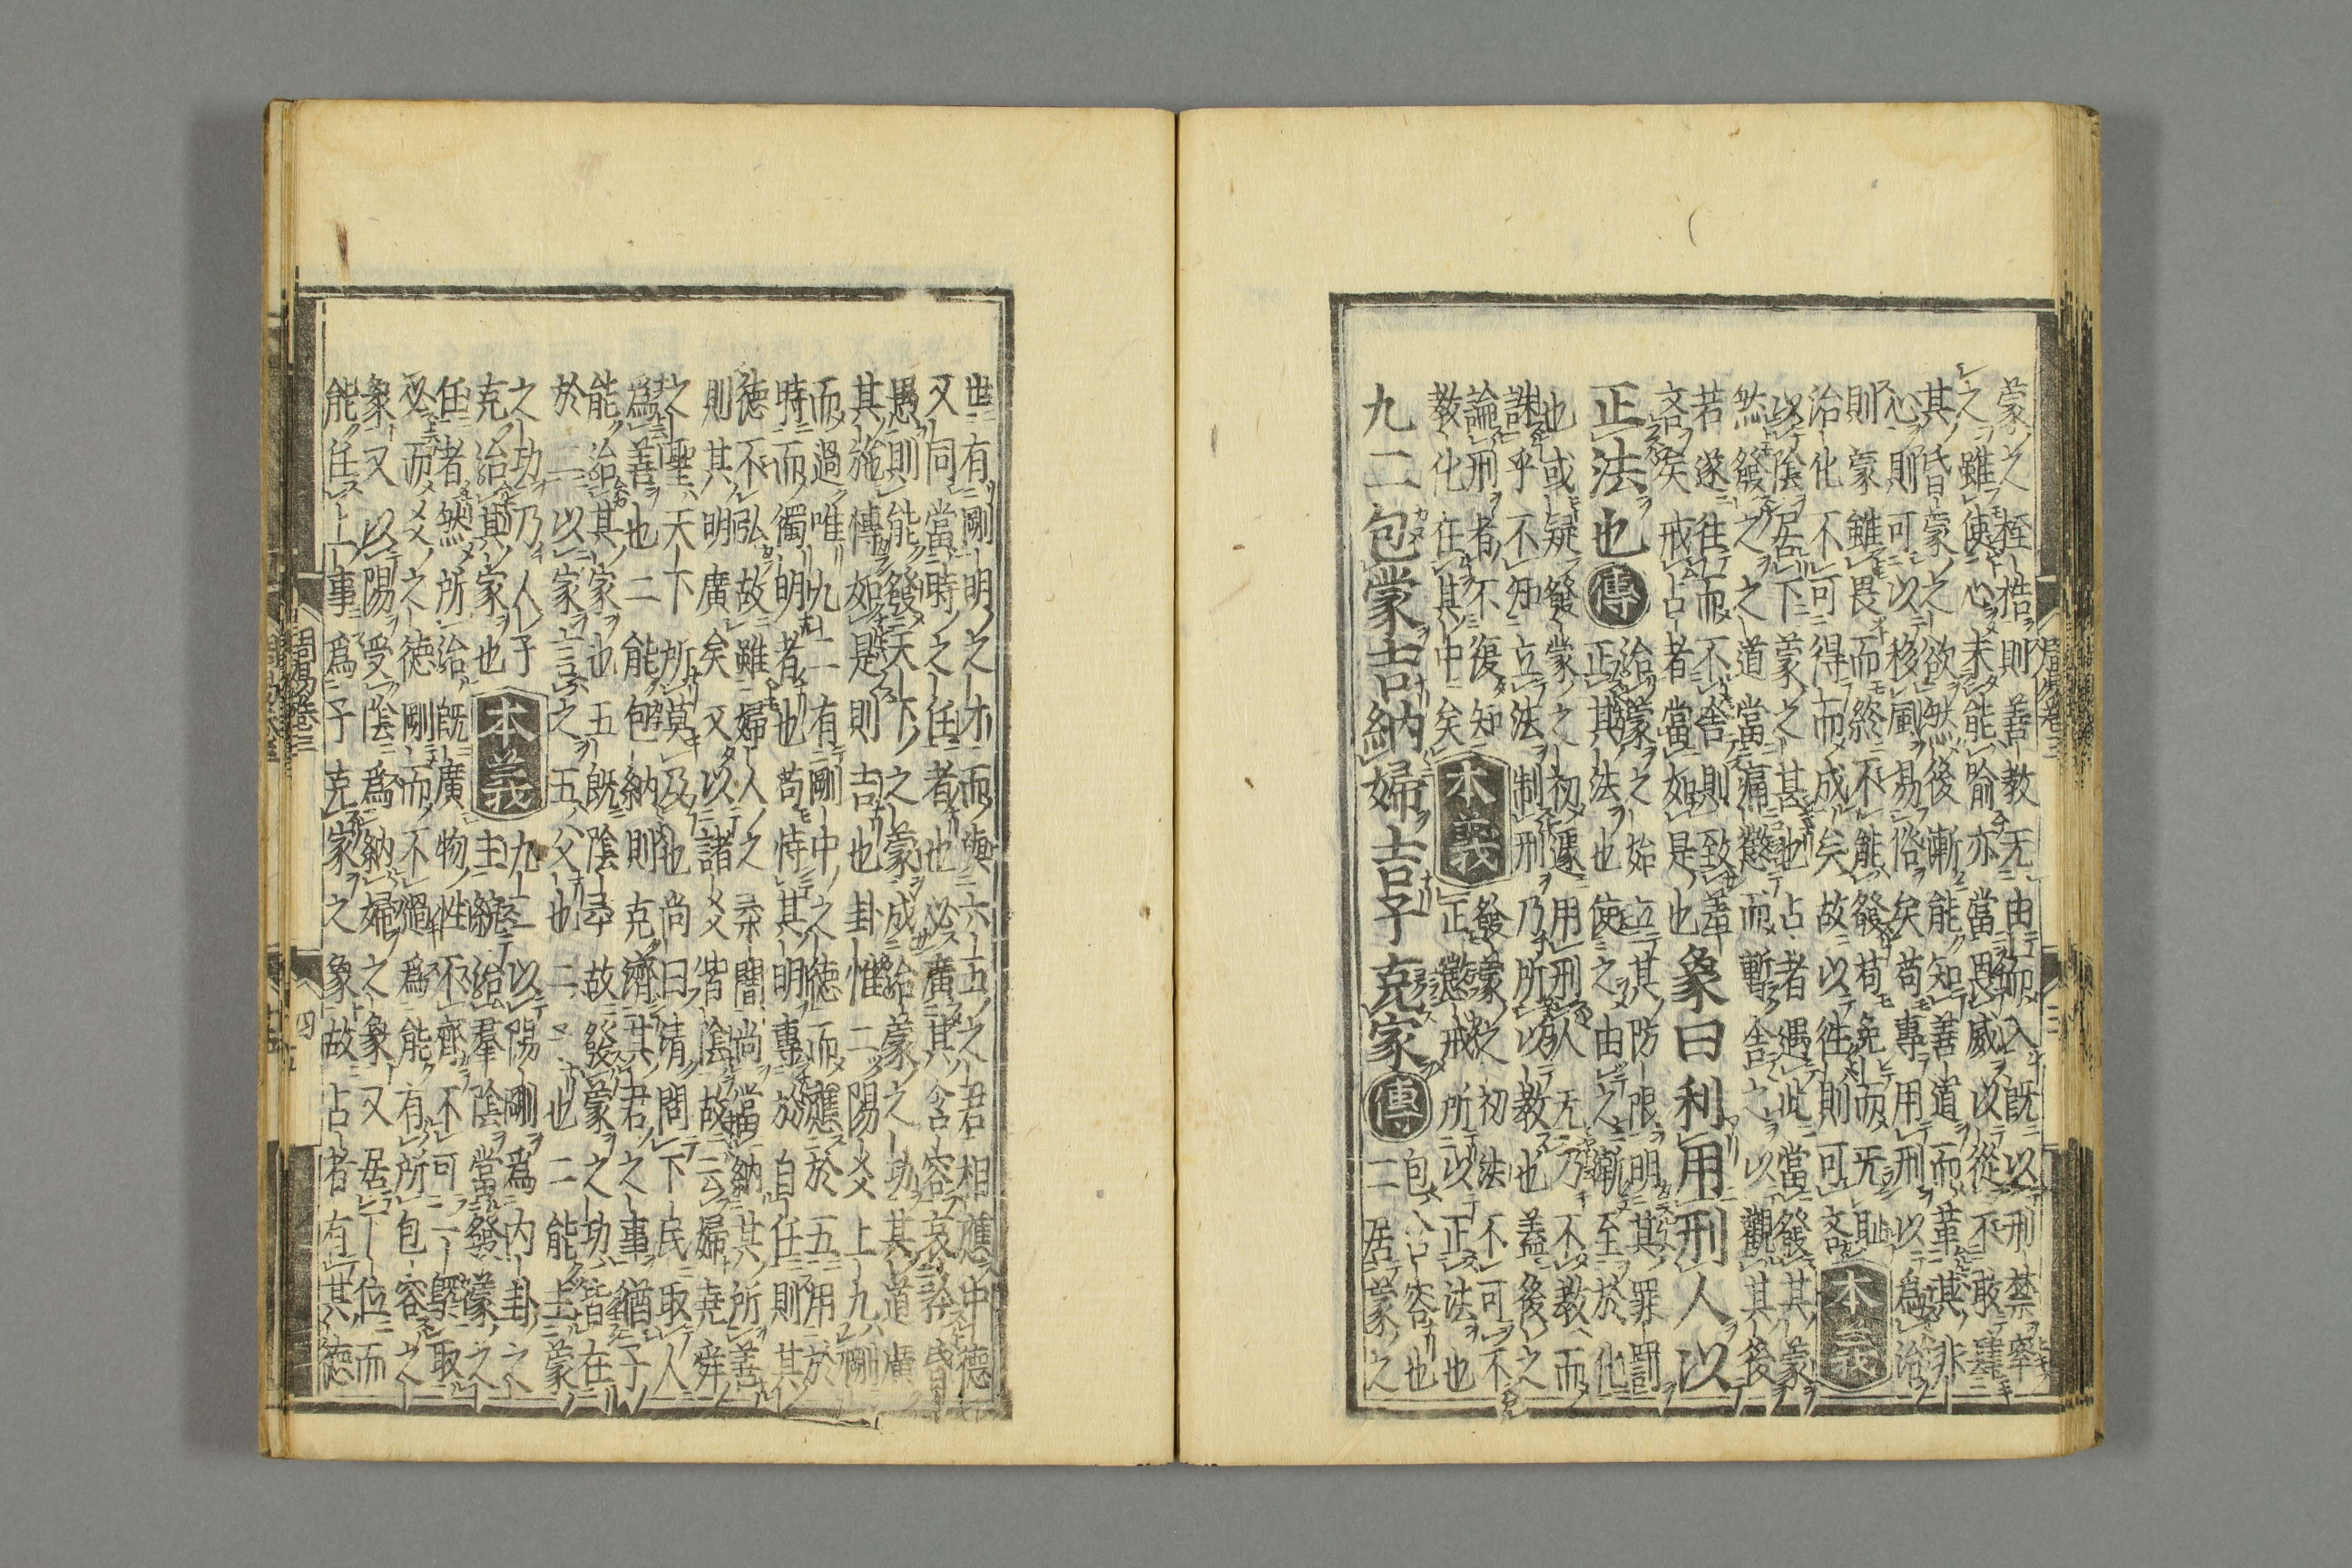 蒙之桎梏則善教无由而入既以刑禁率
之雖使心未能喩亦當畏威以從不敢肆
其昏蒙之欲然後漸能知善道而革其非
心則可以移風易俗矣苟專用刑以爲治
則蒙雖畏而終不能發苟免而无恥
治化不可得而成矣故以往則可吝 本義
以陰居下蒙之甚也占者遇此當發其蒙
然發之之道當痛懲而暫舍之以觀其後
若遂往而不舍則致羞
吝矣戒占者當如是也 象曰利用刑人以
正法也 傳 治蒙之始立其防限明其罪罰
正其法也使之由之漸至於化
也或疑發蒙之初遽用刑人无乃不教而
誅乎不知立法制刑乃所以教也蓋後之
論刑者不復知
教化在其中矣 本義 發蒙之初法不可不
正懲戒所以正法也
九二包蒙吉納婦吉子克家 傳 包含容也
二居蒙之
世有剛明之才而與六五之君相應中德
又同當時之任者也必廣其含容哀矜昏
愚則能發天下之蒙成治蒙之功其道廣
其施博如是則吉也卦惟二陽爻上九剛
而過唯九二有剛中之德而應於五用於
時而獨明者也苟恃其明專於自任則其
德不弘故雖婦人之柔闇尚當納其所善
則其明廣矣又以諸爻皆陰故云婦堯舜
之聖天下所莫及也尚曰清問下民取人
爲善也二能包納則克濟其君之事猶子
能治其家也五既陰柔故發蒙之功皆在
於二以家言之五父也二子也二能主蒙
之功乃人子
克治其家也 本義 九二以陽剛爲內卦之
主統治羣陰當發蒙之
任者然所治既廣物性不齊不可一槩取
必而爻之德剛而不過爲能有所包容之
象又以陽受陰爲納婦之象又居下位而
能任上事爲子克家之象故占者有其德
周易卷三 四